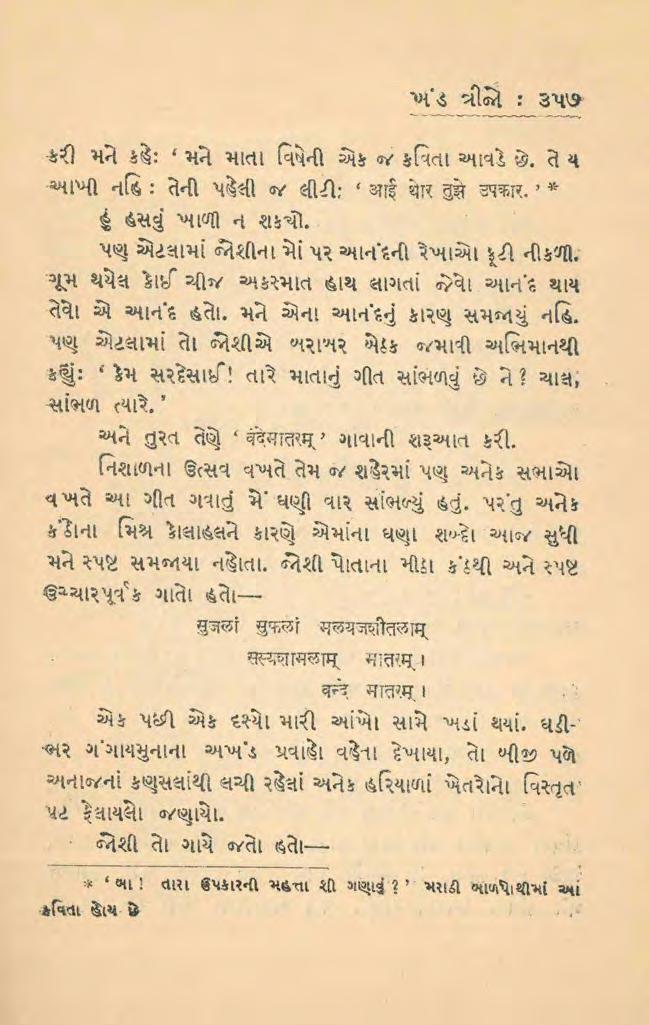 ખંડ ત્રીજો : ૩૫૭
કરી મને કહે: ‘ મને માતા વિષેની એક જ કવિતા આવડે છે. તે ય
આખી નહિ : તેની પહેલી જ લીટી: ‘ आई थोर तुझे उपकार. ’ *
હું હસવું ખાળી ન શક્યો.
પણ એટલામાં જોશીના મોં પર આનંદની રેખાઓ ફૂટી નીકળી.
ગૂમ થયેલ કોઈ ચીજ અકસ્માત હાથ લાગતાં જેવો આનંદ થાય
તેવો એ આનંદ હતો. મને એના આનંદનું કારણ સમજાયું નહિ.
પણ એટલામાં તો જોશીએ બરાબર બેઠક જમાવી અભિમાનથી
કહ્યું: ‘ કેમ સરદેસાઈ! તારે માતાનું ગીત સાંભળવું છે ને? ચાલ,
સાંભળ ત્યારે. ’
અને તુરત તેણે ‘ वंदेमातरम् ’ ગાવાની શરૂઆત કરી.
નિશાળના ઉત્સવ વખતે તેમ જ શહેરમાં પણ અનેક સભાઓ
વખતે આ ગીત ગવાતું મેં ઘણી વાર સાંભળ્યું હતું. પરંતુ અનેક
કંઠોના મિશ્ર કોલાહલને કારણે એમાંના ઘણા શબ્દો આજ સુધી
મને સ્પષ્ટ સમજાયા નહોતા. જોશી પોતાના મીઠા કંઠથી અને સ્પષ્ટ
ઉચ્ચારપૂર્વક ગાતો હતો—
सुजलां सुफलां मलयजशीतलाम्
सस्यशामलाम् मातरम् ।
वन्दे मातरम् ।
એક પછી એક દૃશ્યો મારી આંખો સામે ખડાં થયાં. ઘડી-
ભર ગંગાયમુનાના અખંડ પ્રવાહો વહેતા દેખાયા, તો બીજી પળે
અનાજનાં કણસલાંથી લચી રહેલાં અનેક હરિયાળાં ખેતરોનો વિસ્તૃત
પટ ફેલાયલો જણાયો.
જોશી તો ગાયે જતો હતો—
* ‘ બા ! તારા ઉપકારની મહત્તા શી ગણાવું ? ’ મરાઠી બાળપોથીમાં આ
કવિતા હોય છે